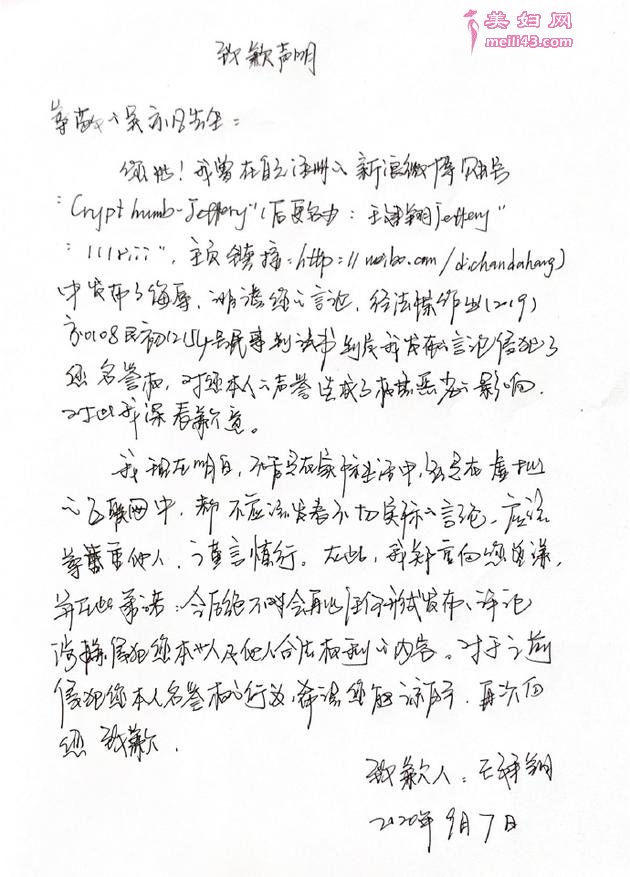 美妇网
meili43.com
致歉声明
尊敬的吴亦凡先生：
您好！我曾在自己注册的新浪微博账号
"Crypthumb-Jeffery"（后更名为：王泽翔Jeffery"
主页链接：http://weibo.com/dichandaheng）
中发布了侮辱、诽谤您的言论，经法院作出(2019)
京0108民初12154号民事判决书判定我发布的言论侵犯了
您名誉权，对您本人的声誉造成了极其恶劣的影响，
对此我深表歉意。
我现在明白，不管是在实际生活中，还是在虚拟
的互联网中，都不应该发表不切实际的言论，应该
尊重他人、谨言慎行。在此，我郑重向您道歉，
并在此承诺：今后绝不会再以任何形式发布、评论
侵犯您本人以及他人合法权利的内容。对于之前
侵犯您本人名誉权的行为，希望您能谅解，再次向
您致歉。
致歉人：王泽翔
2020年9月7日